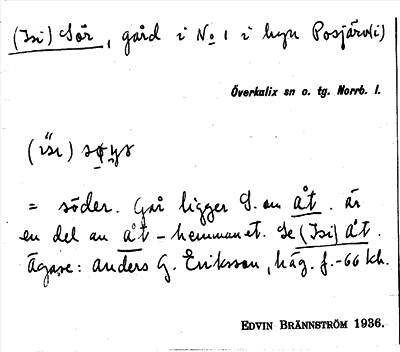 (Isi) Sör, gård i No 1 i byn Posjärv(i)
Överkalix sn o. tg. Norrb. l.
= söder. Går ligger S. om åt. är
en del av åt-hemmanet. Se (Isi) Åt.
Ägare: Anders G. Eriksson, häg. f. -66 kh.
EDVIN BRÄNNSTRÖM 1936.